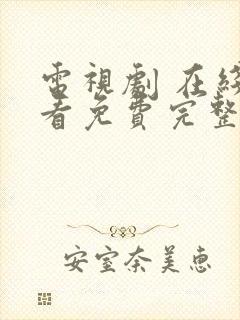 電視劇 在綫
看免費完整
安室奈美恵